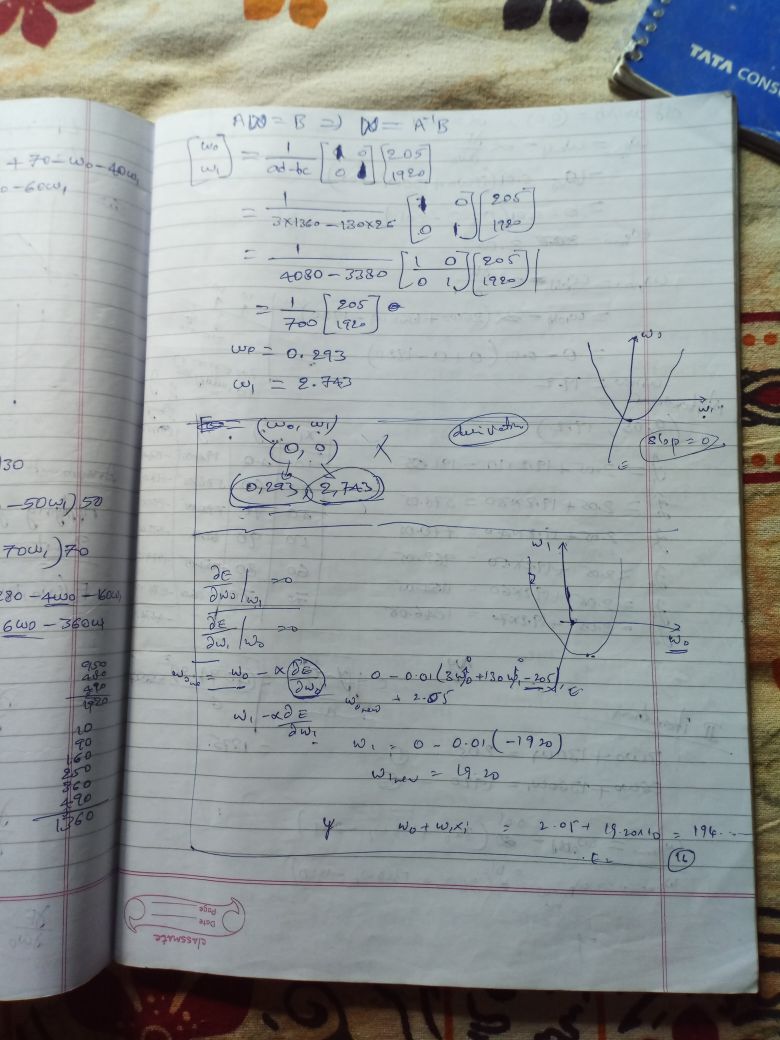 TATA CONSU
+ 70 - w0 - 40w1
0 - 60w1
30
- 50w1) 50
70w1) 70
280 - 4w0 - 160w1
6w0 - 360w1
950
480
490
1920
10
90
160
250
360
490
1360
A = B ⇒ = A⁻¹B
[w0 w1] = 1/ad-bc [1 0 0 1] [205 1920]
= 1/3×1360 - 130×26 [1 0 0 1] [205 1920]
= 1/4080 - 3380 [1 0 0 1] [205 1920]
= 1/700 [205 1920]
w0 = 0.293
w1 = 2.743
w0
w1
E
slop = 0
(w0, w1)
(0, 0) X
0,293, 2,743
w1
w0
E
∂E/∂w0 | w1 = 0
∂E/∂w1 | w0 = 0
w0new = w0 - α ∂E/∂w0 0 - 0.01 (3w0 + 130w1 - 205)
w0new + 2.05
w1 - α ∂E/∂w1 w1 = 0 - 0.01 (-1920)
w1new = 19.20
y w0 + w1x1 = 2.05 + 19.20×10 = 194....
classmate
Date
Page